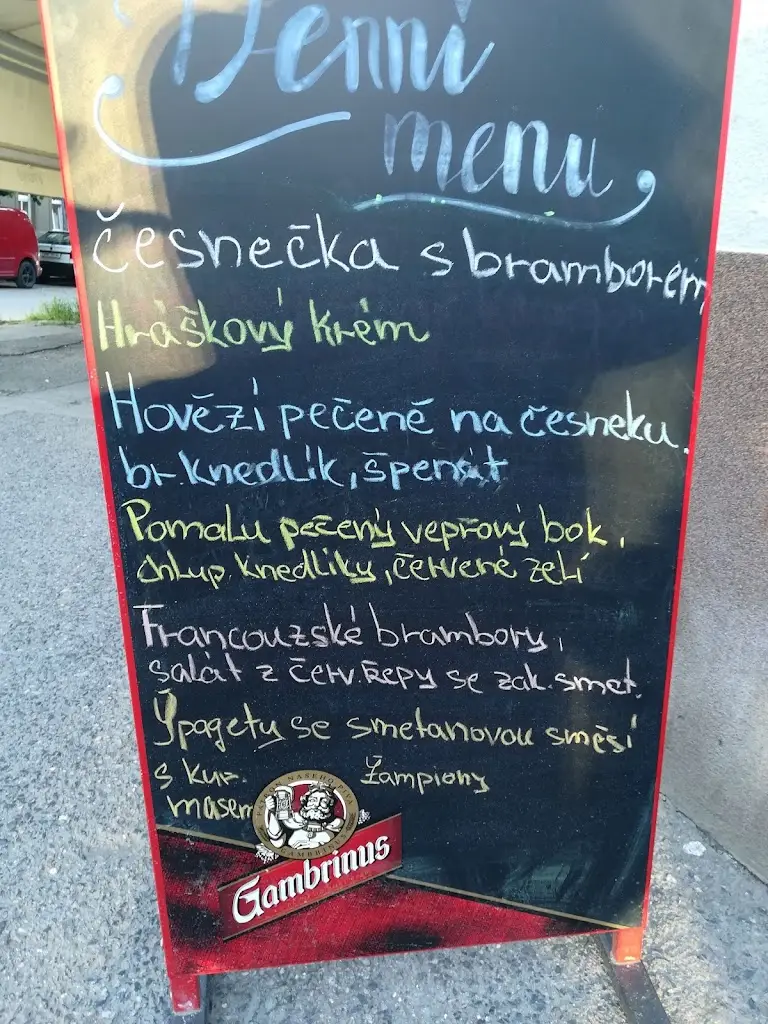 Denní
menu
česnečka s bramborem
Hráškový krém
Hovězí pečené na česneku,
br knedlík, špenát
Pomalu pečený vepřový bok,
chlup. knedlíky, červené zelí
Francouzské brambory,
salát z červ. řepy se zak. smet.
Špagety se smetanovou směsí
s kuř. žampiony
masem
PATRON NAŠEHO PIVA
GAMBRINUS
Gambrinus